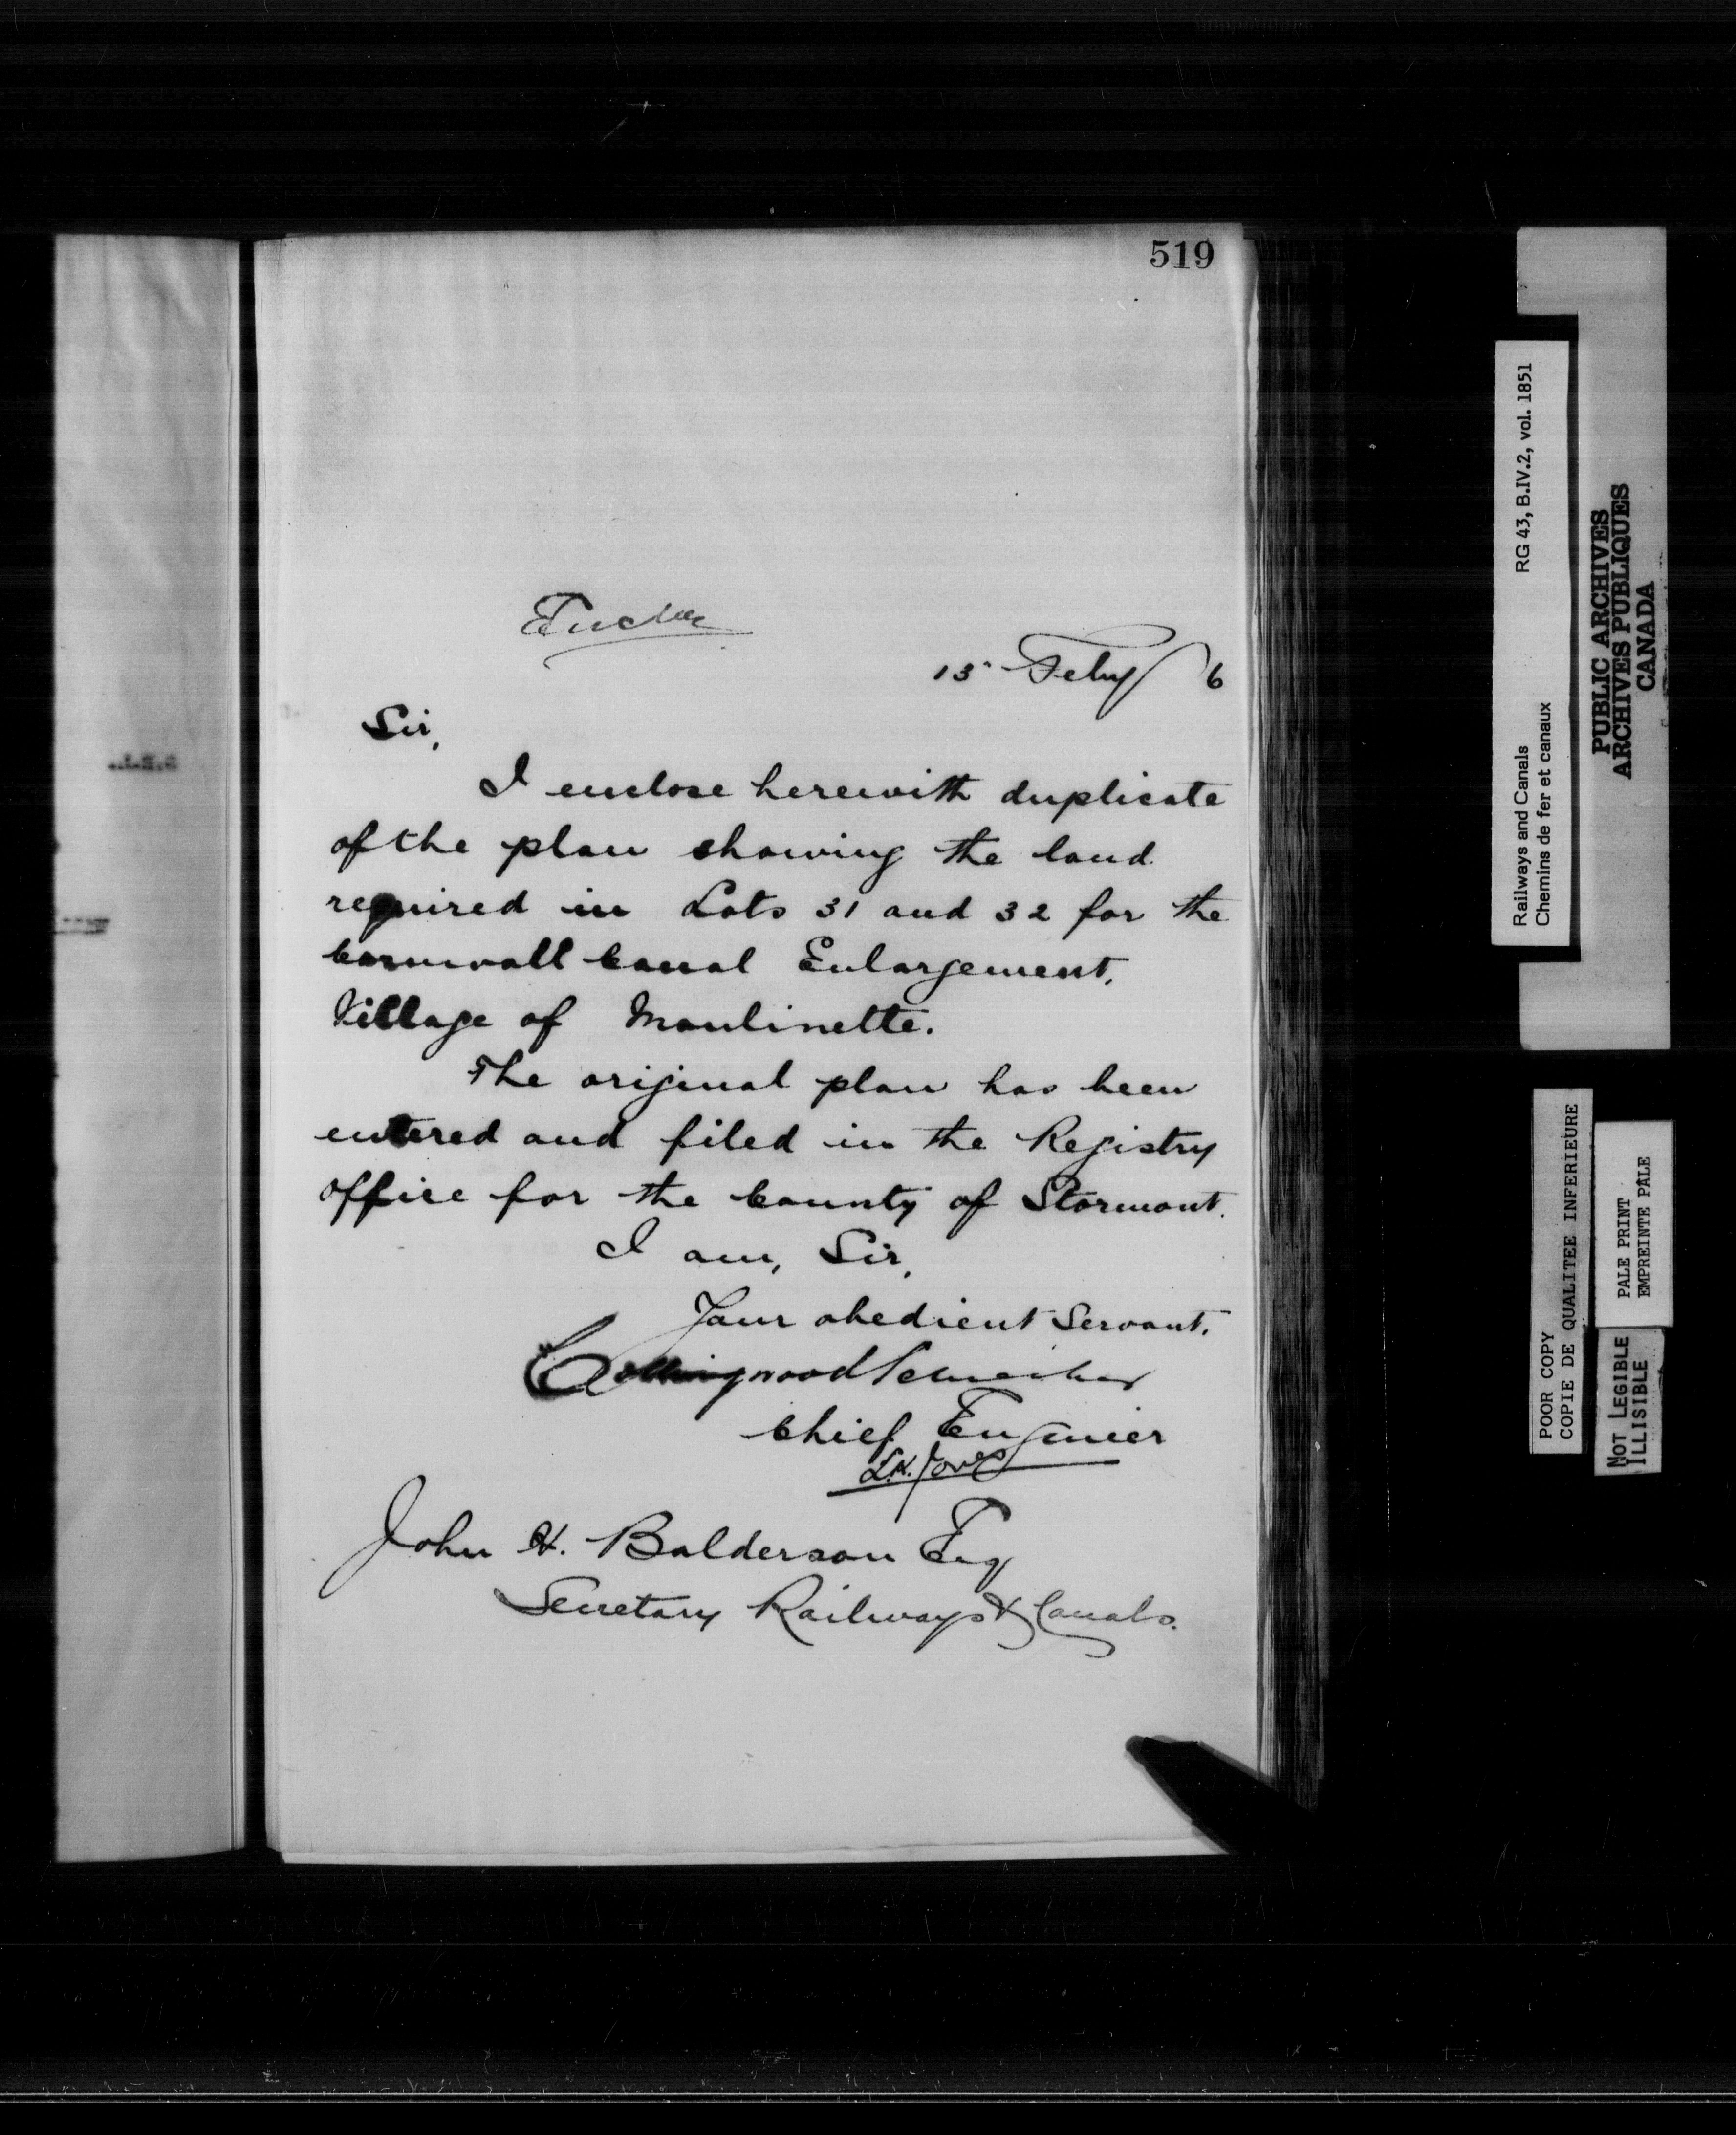 519
13 Feby 6
Sir,
I enclose herewith duplicate
of the plan showing the land
required in Lots 31 and 32 for the
Cornwall Canal Enlargement,
Village of Moulinette.
The original plan has been
entered and filed in the Registry
office for the County of Stormont.
I am, Sir,
Your obedient Servant.
Collingwood Schreiber
Chief Engineer
L.K. Jones
John H. Balderson Esq
Secretary Railways & Canals.
Railways and Canals RG 43, B.IV.2, vol. 1851
Chemins de fer et canaux
PUBLIC ARCHIVES
ARCHIVES PUBLIQUES
CANADA
POOR COPY
COPIE DE QUALITEE INFERIEURE
PALE PRINT
EMPREINTE PÂLE
NOT LEGIBLE
ILLISIBLE